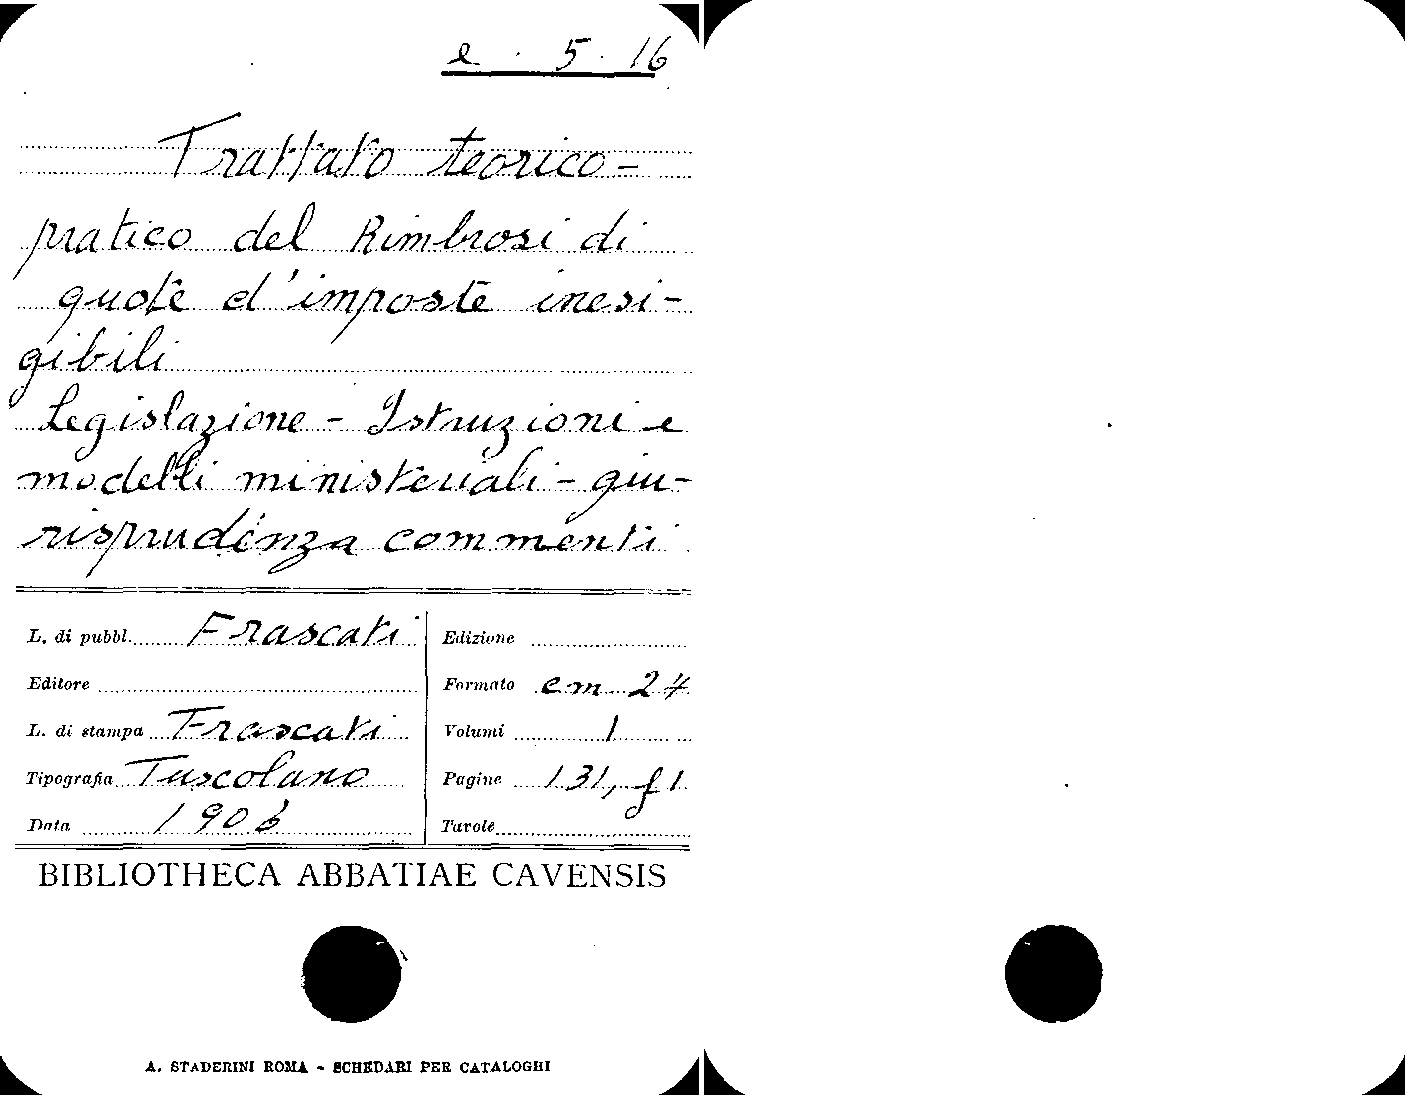 e . 5 . 16
Trattato teorico-
pratico del Rimbrosi di
quote d'imposte inesi-
gibili
Legislazione - Istruzioni e
modelli ministeriali - giu-
risprudenza commenti
L. di pubbl. Frascati
Editore
L. di stampa Frascati
Tipografia Tuscolano
Data 1906
Edizione
Formato cm 24
Volumi 1
Pagine 131, f 1
Tavole
BIBLIOTHECA ABBATIAE CAVENSIS
A. STADERINI ROMA - SCHEDARI PER CATALOGHI